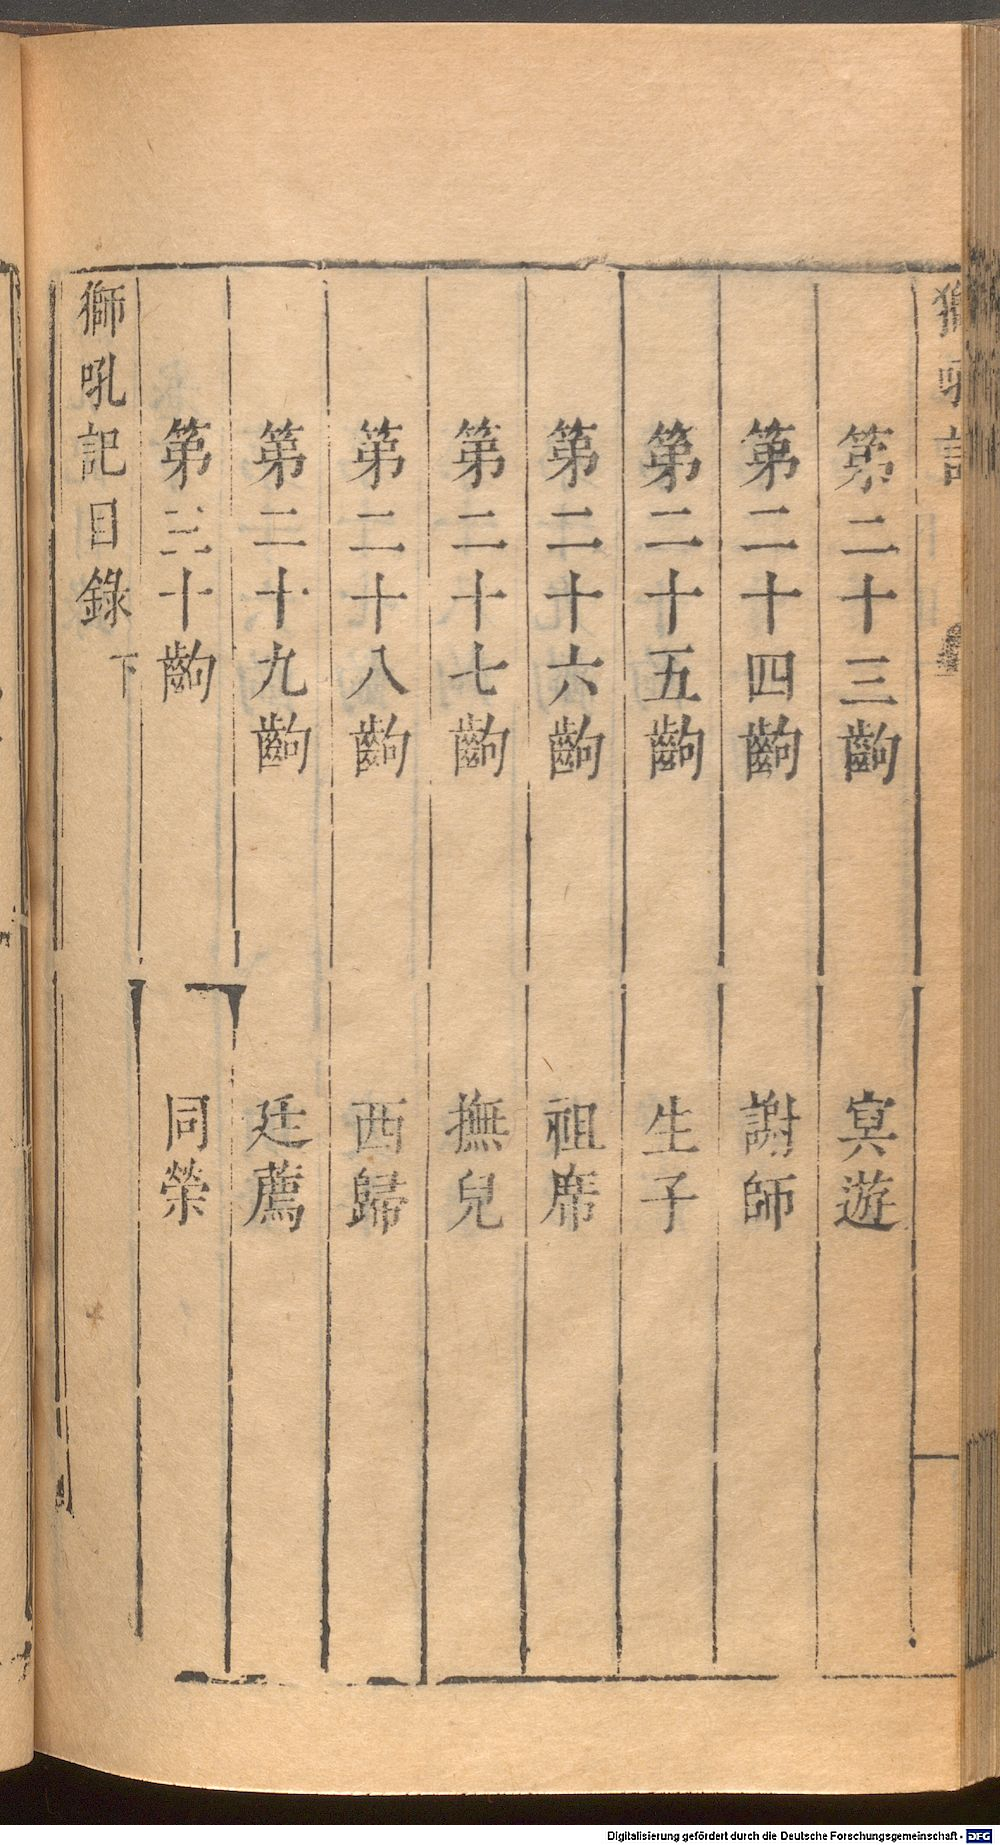 獅吼記
第二十三齣 冥遊
第二十四齣 謝師
第二十五齣 生子
第二十六齣 祖席
第二十七齣 撫兒
第二十八齣 西歸
第二十九齣 廷薦
第三十齣 同榮
獅吼記目錄 下
Digitalisierung gefördert durch die Deutsche Forschungsgemeinschaft - DFG